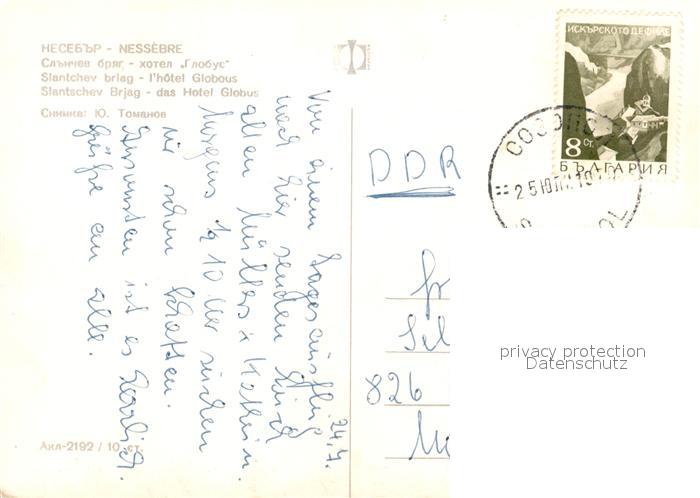 НЕСЕБЪР - NESSÈBRE
Слънчев бряг - хотел „Глобус"
Slantchev briag - l'hôtel Globous
Slantschev Brjag - das Hotel Globus
Снимка: Ю. Томанов
24.7.
Von einem Tagesausflug
nach hier senden Euch
allen Müllers u. Kathrin.
Morgens 1/2 10 Uhr suchen
wir schon Schatten.
Ansonsten ist es herrlich.
Grüße an alle.
Акл-2192 / 10 ст.
ИСКЪРСКОТО ДЕФИЛЕ
8 Ст.
БЪЛГАРИЯ
СОЗОПО
25
DDR
826
privacy protection
Datenschutz